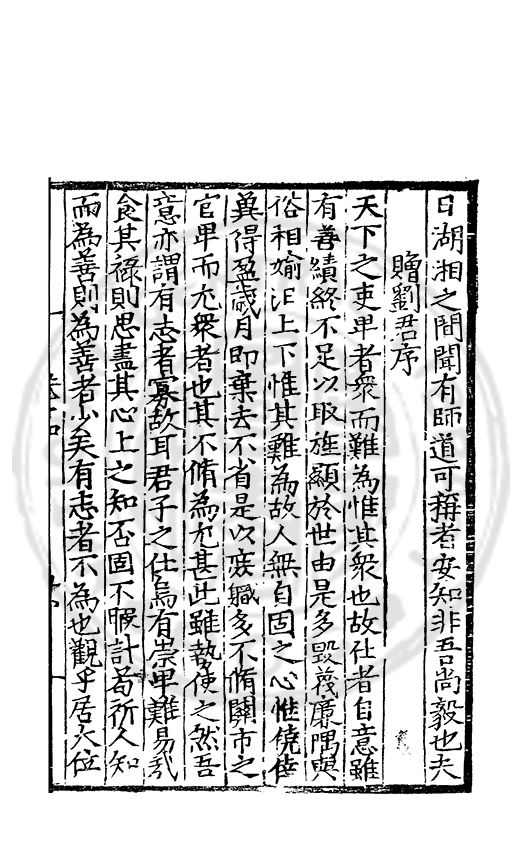 日湖湘之間聞有師道可稱者安知非吾尚毅也夫
贈劉君序
天下之吏卑者衆而難為惟其衆也故仕者自意雖
有善績終不足以取旌顯於世由是多毀蔑廉隅與
俗相媮㳂上下惟其難為故人無自固之心惟僥倖
兾得盈歲月即棄去不省是以㾕職多不脩關市之
官卑而尤衆者也其不脩為尤甚此雖勢使之然吾
意亦謂有志者寡故耳君子之仕烏有崇卑難易哉
食其祿則思盡其心上之知否固不暇計苟祈人知
而為善則為善者少矣有志者不為也觀乎居大位